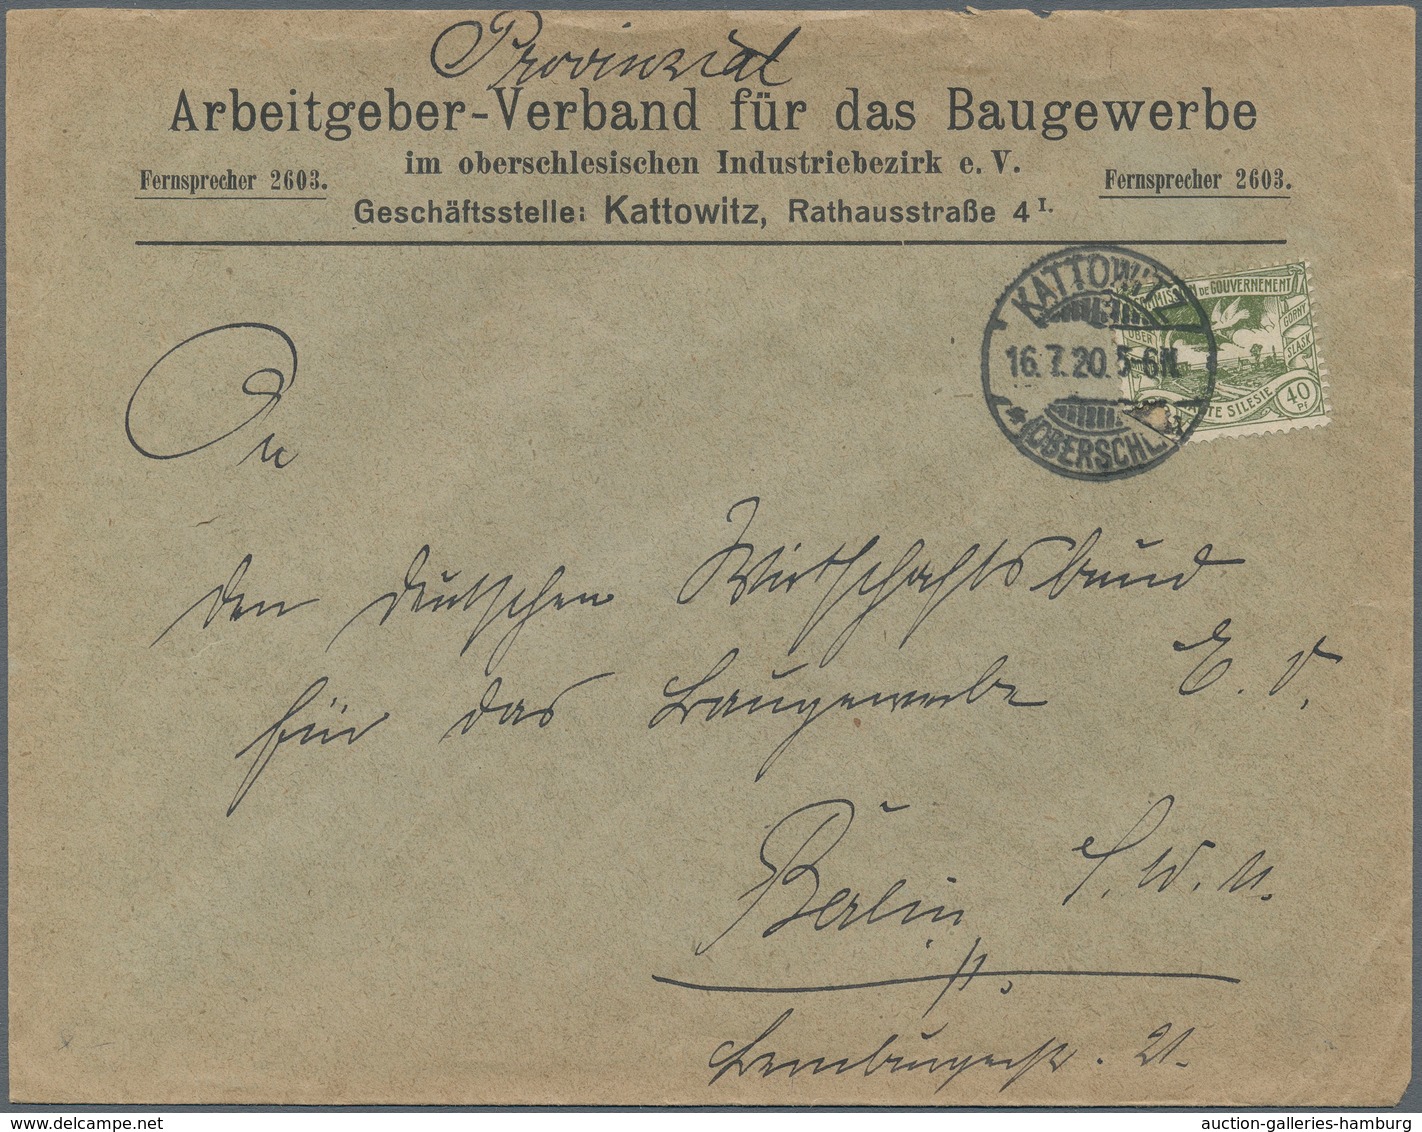 Provinzial
Arbeitgeber-Verband für das Baugewerbe
im oberschlesischen Industriebezirk e. V.
Fernsprecher 2603.
Fernsprecher 2603.
Geschäftsstelle: Kattowitz, Rathausstraße 4 I.
KATTOWITZ
16.7.20.5-6N.
* (OBERSCHL.)
COMMISSION DE GOUVERNEMENT
OBER
GORNY
SLASK
HAUTE SILESIE
40
Pf
An
den deutschen Wirtschaftsbund
für das Baugewerbe E. V.
Berlin S. W. 11.
auction-galleries-hamburg